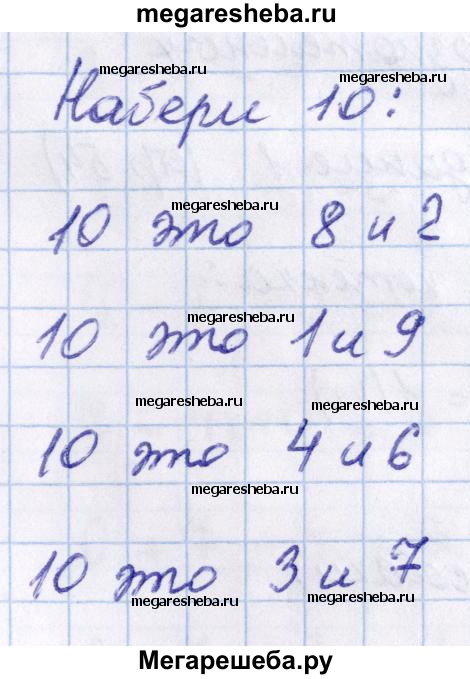 megaresheba.ru
megaresheba.ru
megaresheba.ru
Набери 10:
megaresheba.ru
10 это 8 и 2
megaresheba.ru
10 это 1 и 9
megaresheba.ru
megaresheba.ru
10 это 4 и 6
megaresheba.ru
10 это 3 и 7
megaresheba.ru
megaresheba.ru
Мегарешеба.ру